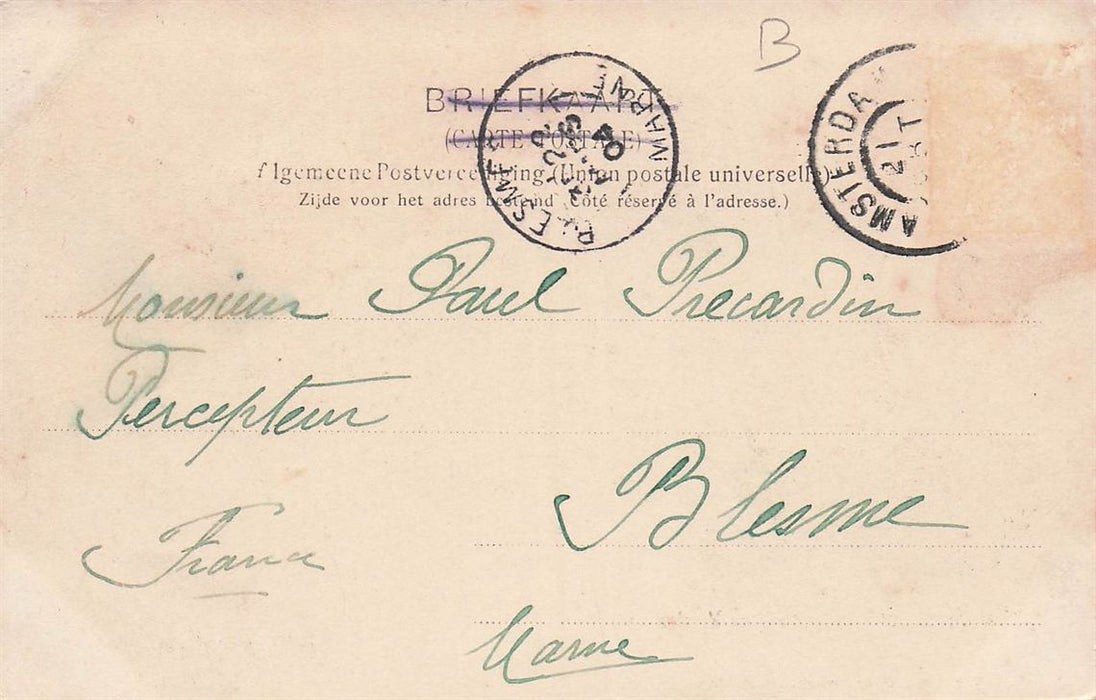 B
BRIEFKAART
(CARTE POSTALE)
Algemeene Postvereeniging (Union postale universelle)
Zijde voor het adres bestemd (Côté réservé à l'adresse.)
BLESMES
MARNE
04
AMSTERDA
21
Monsieur Paul Precardin
Percepteur
Blesme
France
Marne